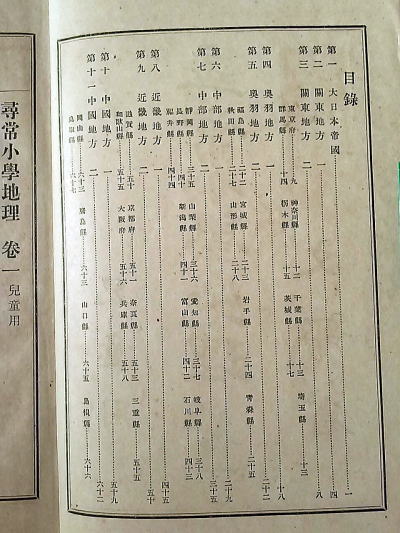 目錄
第一 大日本帝國……一
第二 關東地方 一……四
第三 關東地方 二……八
東京府……九 神奈川縣……十二 千葉縣……十三 埼玉縣……十三
群馬縣……十四 栃木縣……十五 茨城縣……十七
第四 奧羽地方 一……十八
第五 奧羽地方 二……二十二
福島縣……二十二 宮城縣……二十三 岩手縣……二十四 靑森縣……二十五
秋田縣 山形縣……二十八
第六 中部地方 一……二十九
第七 中部地方 二……三十五
靜岡縣……三十五 山梨縣……三十六 愛知縣……三十七 岐阜縣……三十八
長野縣……四十 新潟縣……四十一 富山縣……四十二 石川縣……四十三
福井縣……四十四
第八 近畿地方 一……四十五
第九 近畿地方 二……五十
滋賀縣 京都府……五十一 奈良縣 三重縣
和歌山縣……五十五 大阪府……五十六 兵庫縣……五十八
第十 中國地方 一……五十九
第十一 中國地方 二……六十二
岡山縣……六十三 廣島縣……六十三 山口縣……六十五 島根縣……六十六
鳥取縣……六十七
尋常小學地理 卷一 兒童用